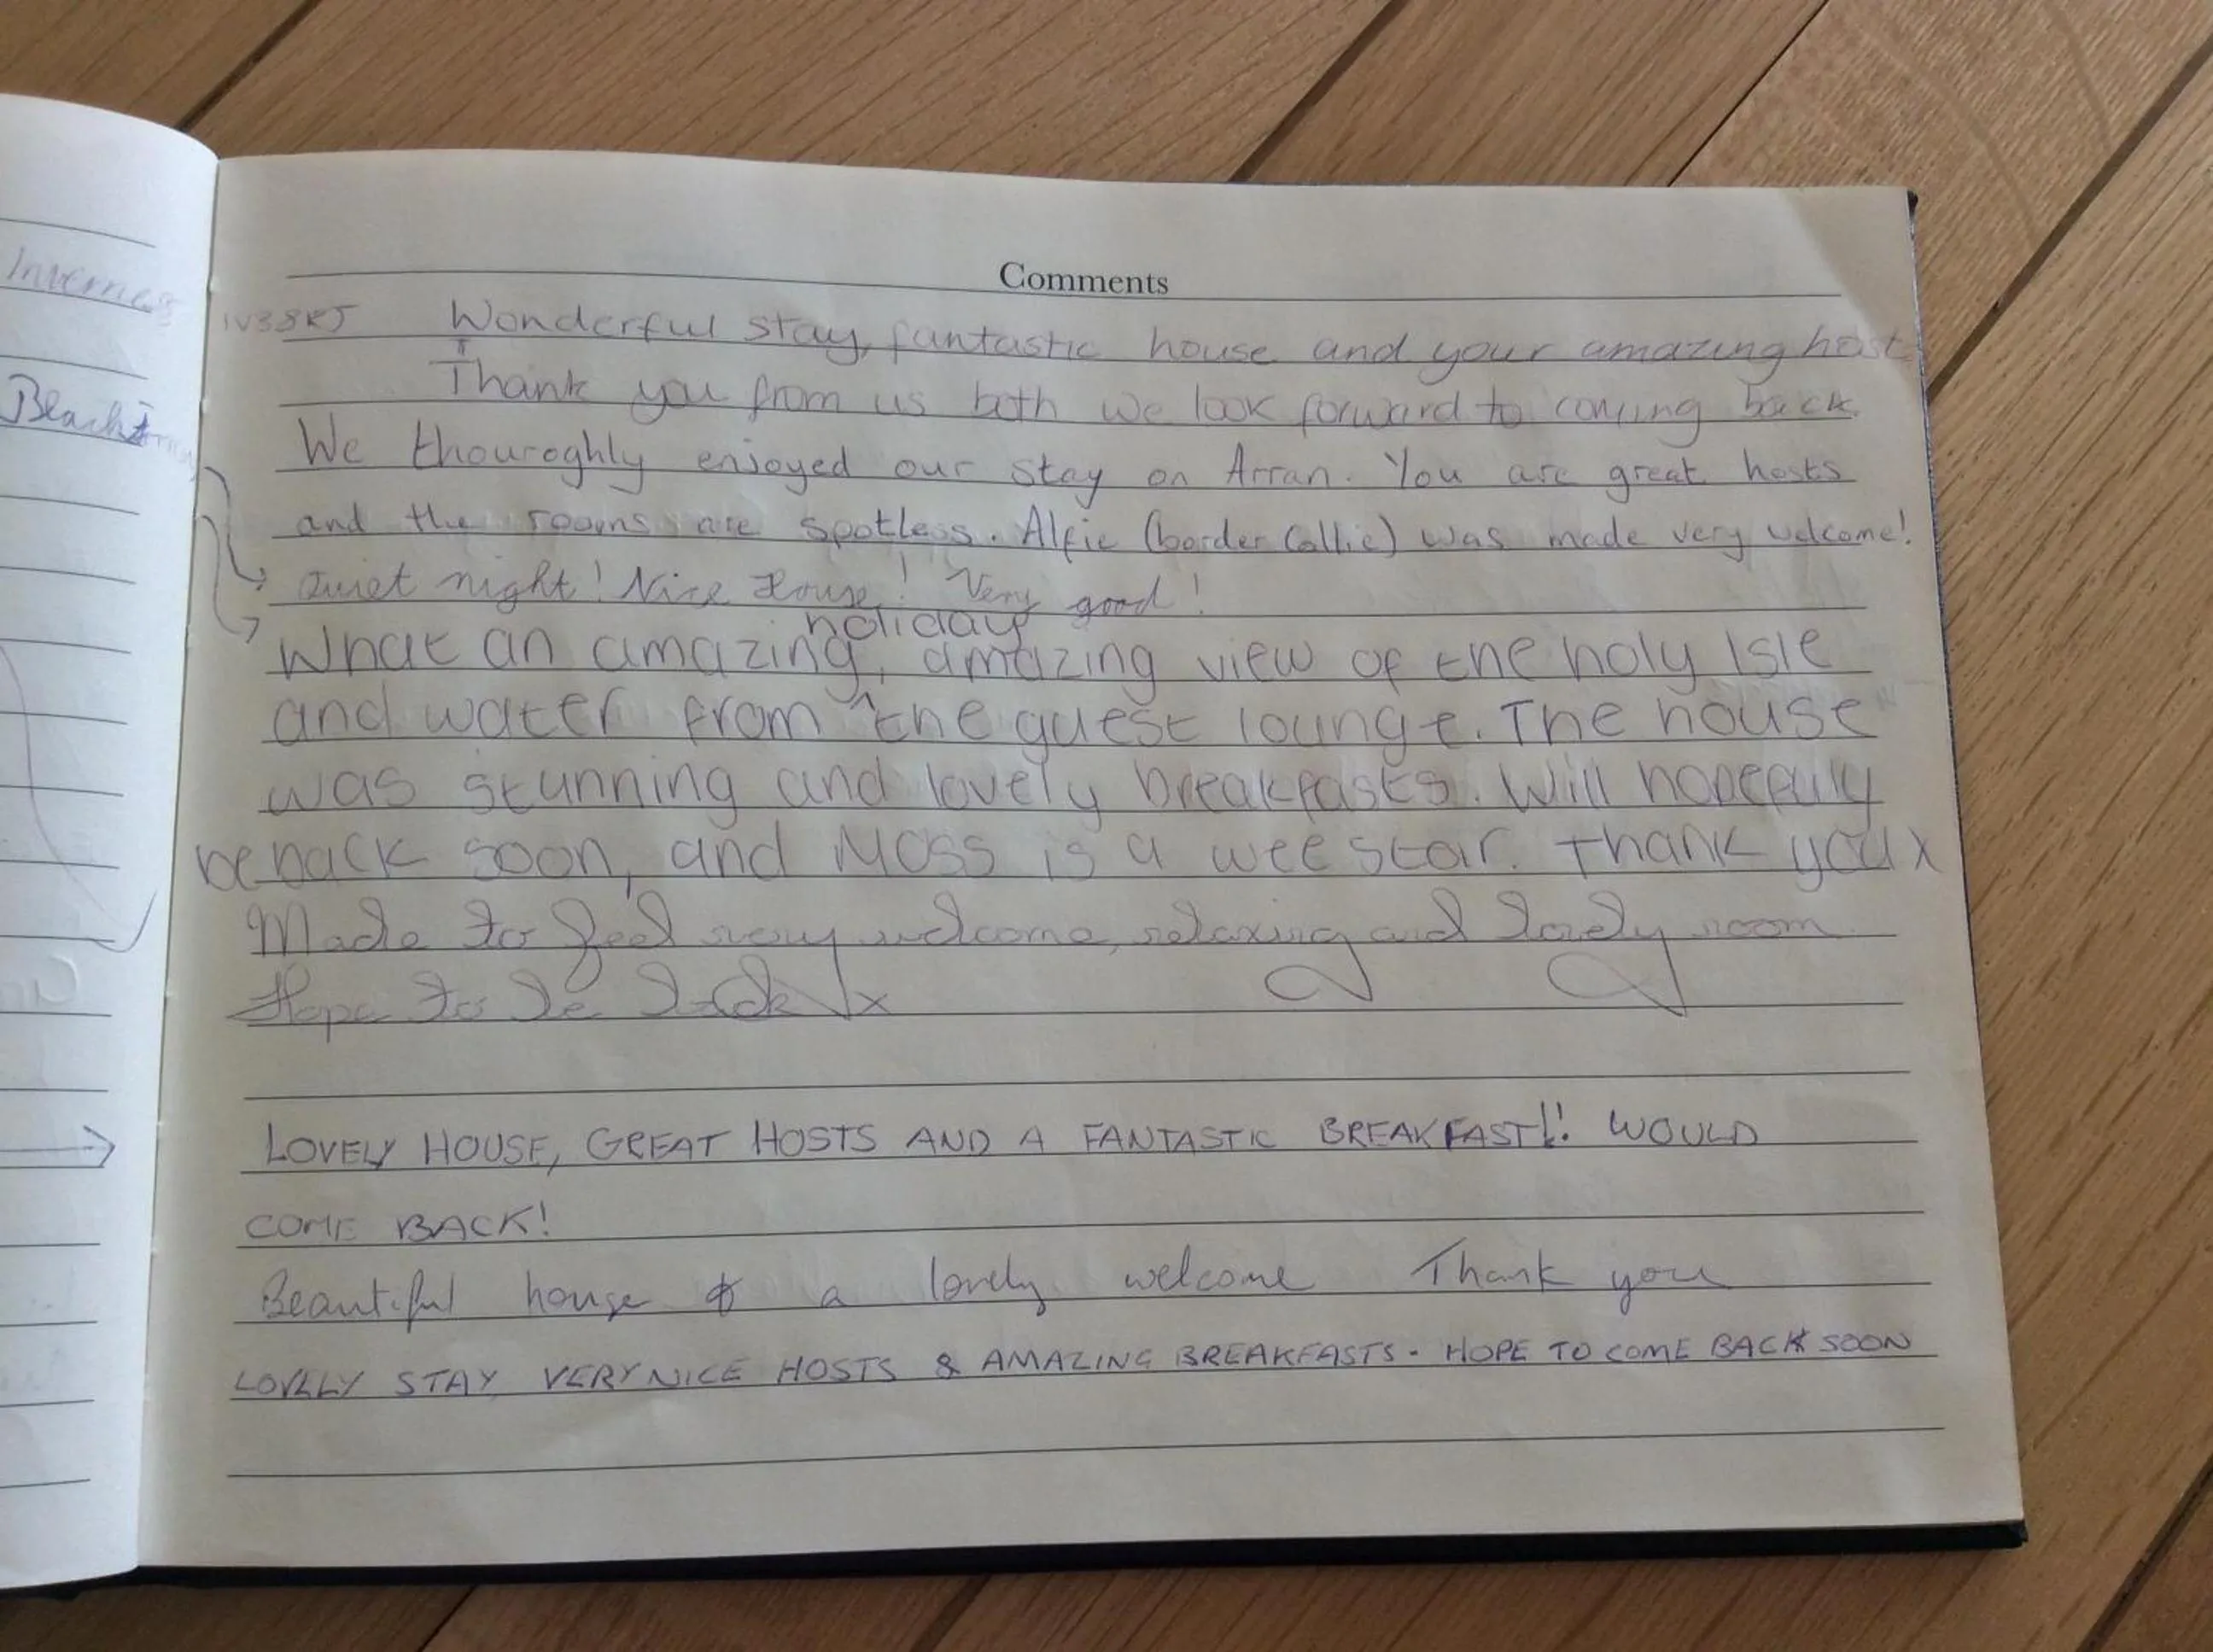 Comments
Inverness
IV38RJ Wonderful stay, fantastic house and your amazing host
Thank you from us both we look forward to coming back
We thouroghly enjoyed our stay on Arran. You are great hosts
and the rooms are spotless. Alfie (border Collie) was made very welcome!
Quiet night! Nice House! Very good!
holiday
What an amazing, amazing view of the holy Isle
and water from ^ the guest lounge. The house
was stunning and lovely breakfasts. Will hopefully
be back soon, and Moss is a wee star. Thank you x
Made to feel very welcome, relaxing and lovely room
Hope to be back x
LOVELY HOUSE, GREAT HOSTS AND A FANTASTIC BREAKFAST!! WOULD
COME BACK!
Beautiful house & a lovely welcome Thank you
LOVELY STAY VERY NICE HOSTS & AMAZING BREAKFASTS. HOPE TO COME BACK SOON